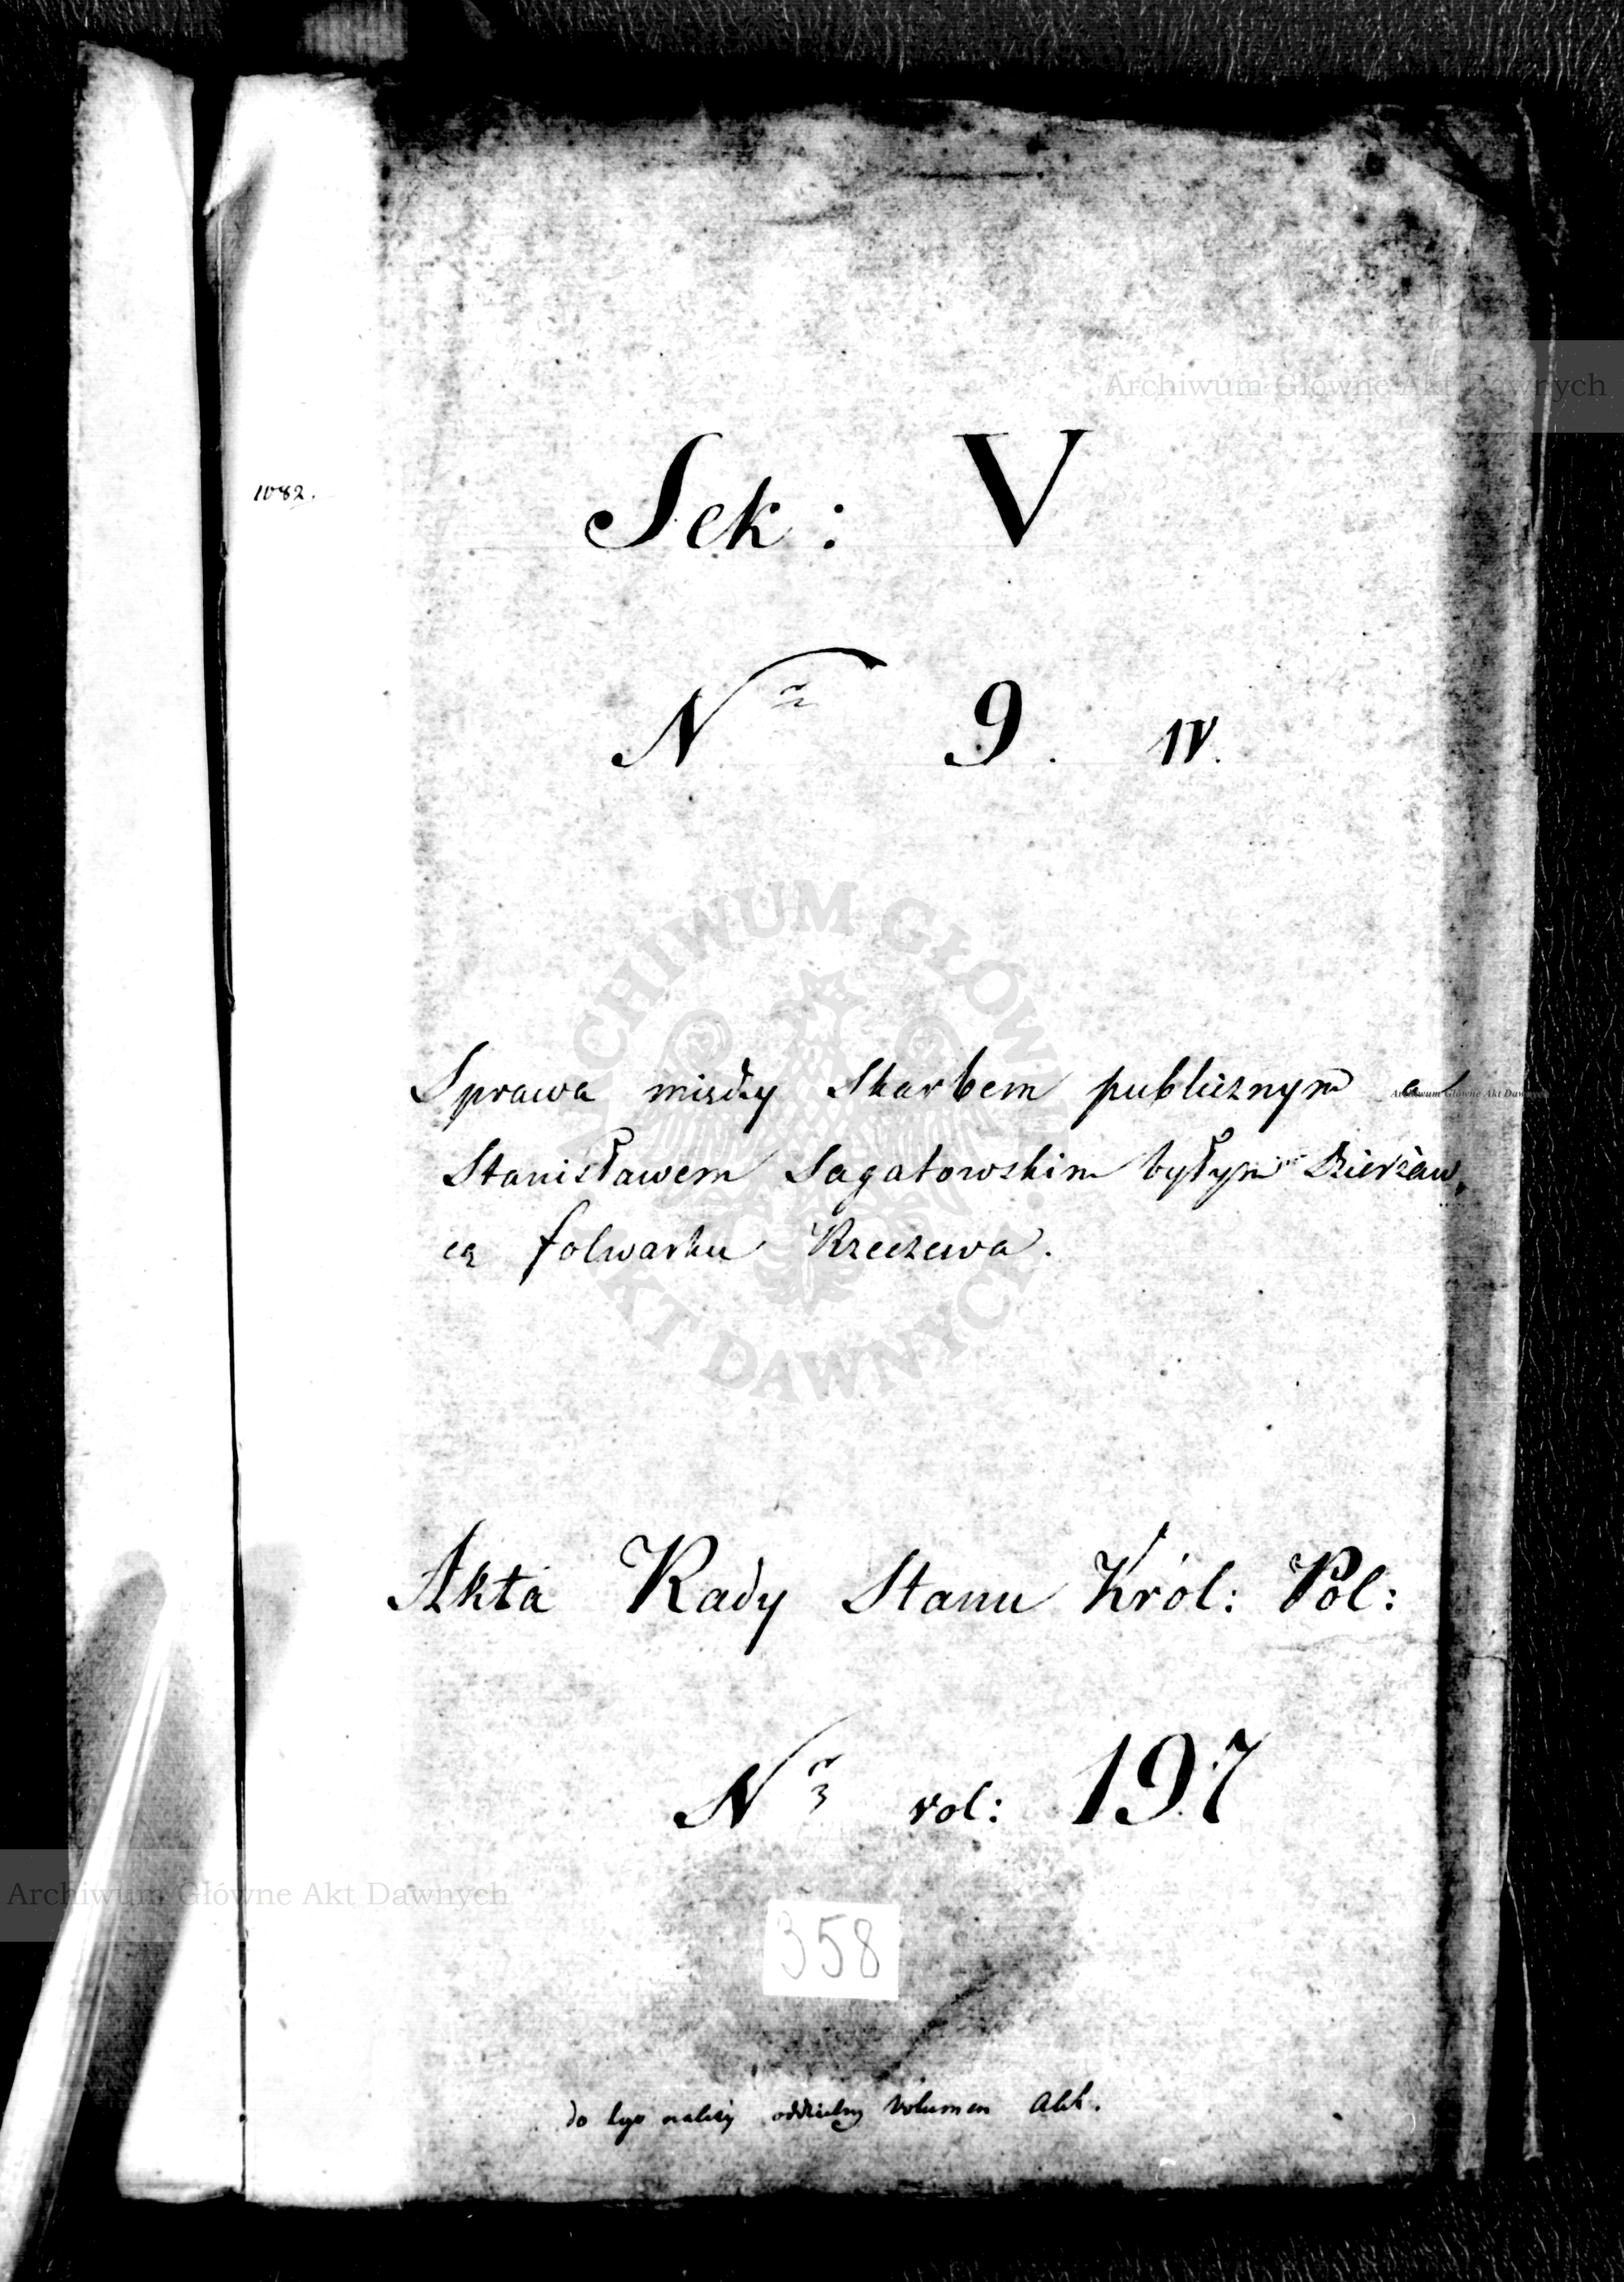 Archiwum Główne Akt Dawnych
1082.
Sek: V
Nr 9. IV.
ARCHIWUM GŁÓWNE AKT DAWNYCH
Sprawa między Skarbem publicznym a
Archiwum Główne Akt Dawnych
Stanisławem Sagatowskim byłym Dzierżaw,
cą folwarku Rzeczewa.
Akta Rady Stanu Król: Pol:
Nr 3 vol: 197
Archiwum Główne Akt Dawnych
358
do tego należy oddzielny Volumen Akt.